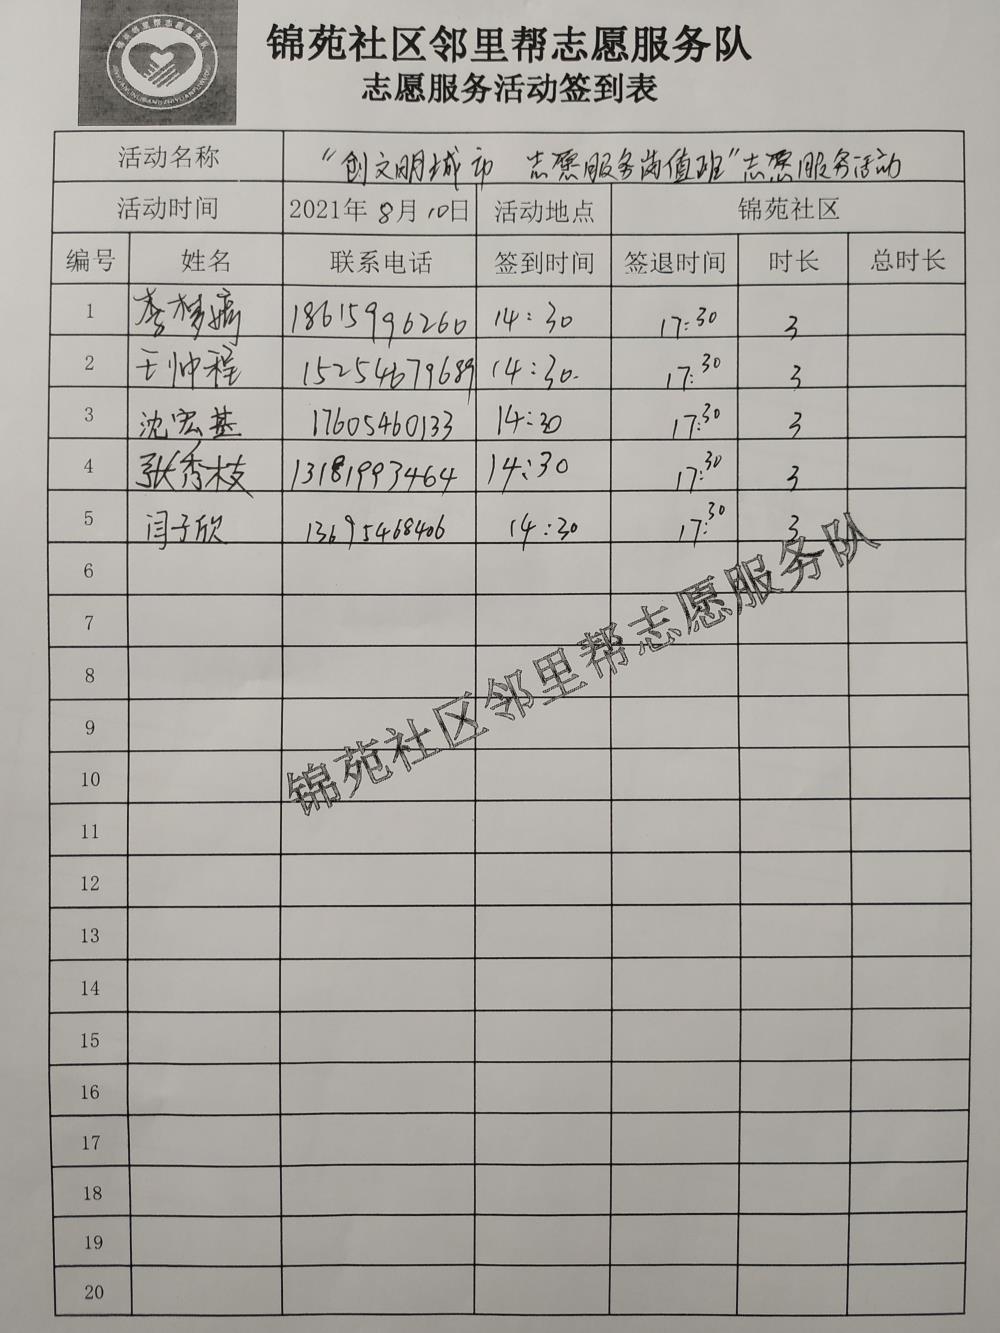 锦苑社区邻里帮志愿服务队
志愿服务活动签到表
活动名称 “创文明城市 志愿服务岗值班”志愿服务活动
活动时间 2021年 8月 10日 活动地点 锦苑社区
编号 姓名 联系电话 签到时间 签退时间 时长 总时长
1 李梦 18615996260 14:30 17:30 3
2 王帅程 15254679689 14:30 17:30 3
3 沈宏基 17605460133 14:30 17:30 3
4 张秀枝 13181993464 14:30 17:30 3
5 闫子欣 13695468406 14:30 17:30 3
6
7
8
9
10
11
12
13
14
15
16
17
18
19
20
锦苑社区邻里帮志愿服务队